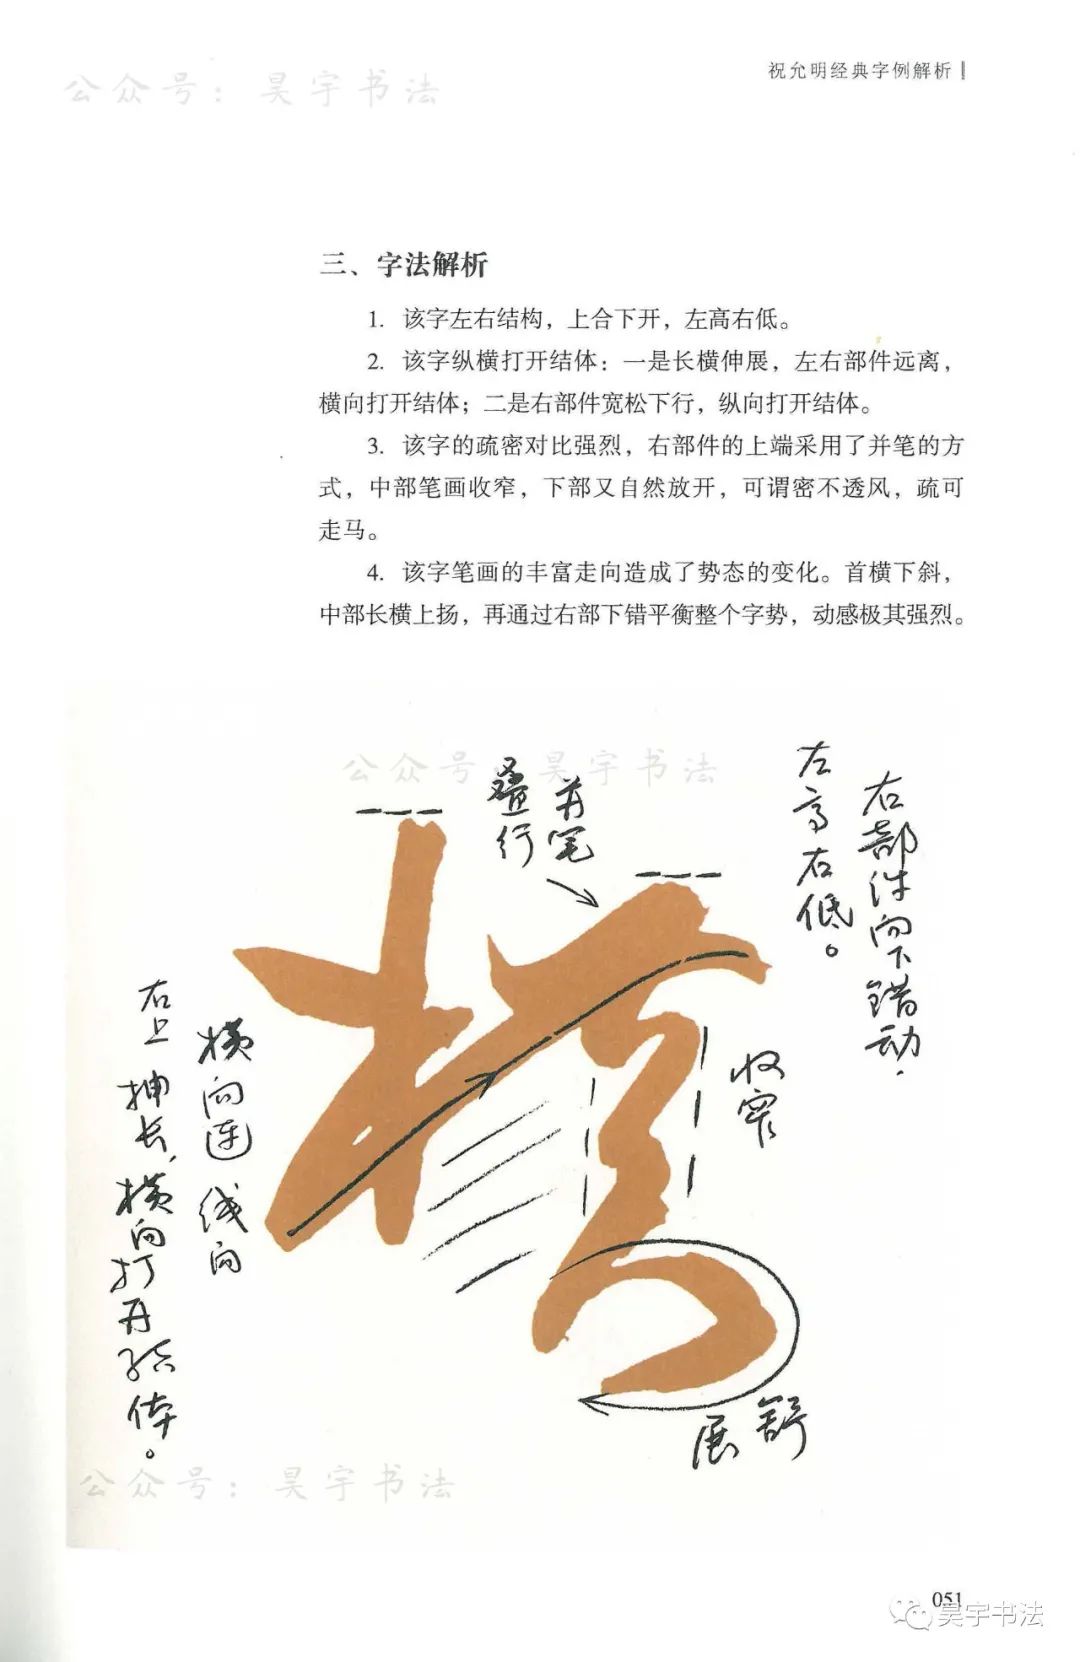 公众号：昊宇书法
祝允明经典字例解析
三、字法解析
1. 该字左右结构，上合下开，左高右低。
2. 该字纵横打开结体：一是长横伸展，左右部件远离，
横向打开结体；二是右部件宽松下行，纵向打开结体。
3. 该字的疏密对比强烈，右部件的上端采用了并笔的方
式，中部笔画收窄，下部又自然放开，可谓密不透风，疏可
走马。
4. 该字笔画的丰富走向造成了势态的变化。首横下斜，
中部长横上扬，再通过右部下错平衡整个字势，动感极其强烈。
公众号：昊宇书法
右部件向下错动.
左高右低。
并笔
叠行
收窄
横向连线向
右上抻长，横向打开结体。
舒
展
公众号：昊宇书法
051
昊宇书法